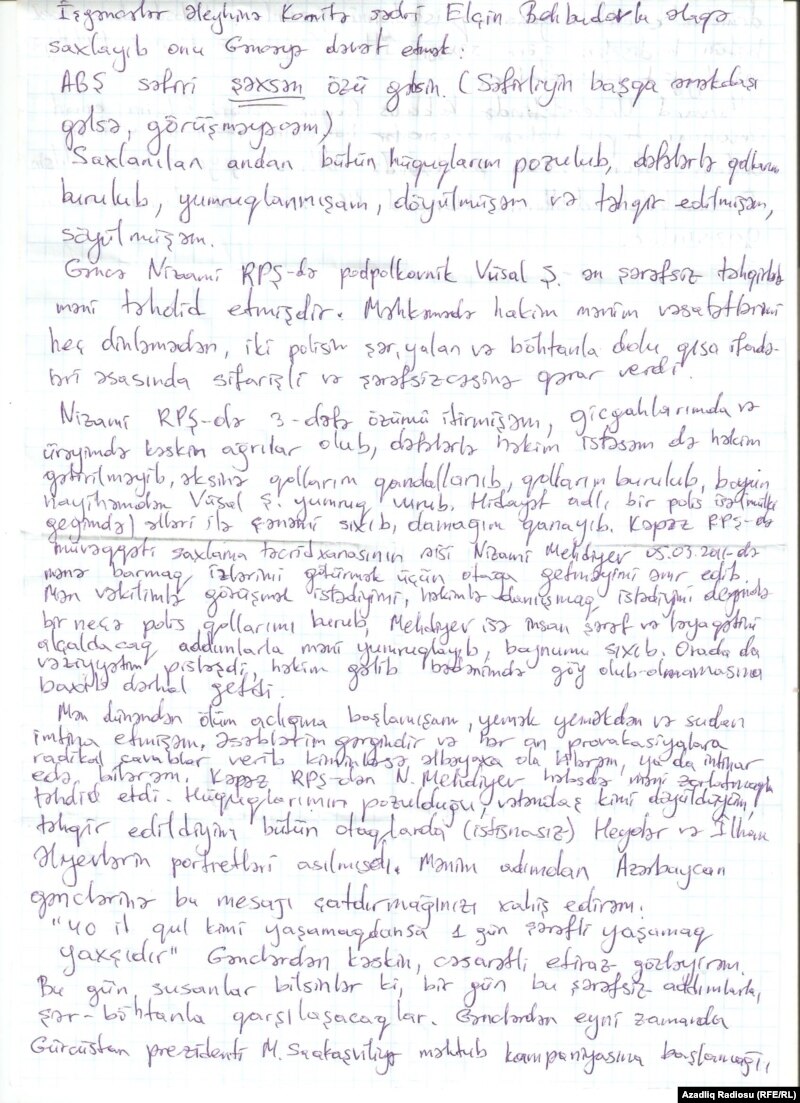 İşgəncələr Əleyhinə Komitə sədri Elçin Behbudovla əlaqə
saxlayıb onu Gəncəyə dəvət etmək.
ABŞ səfiri şəxsən özü gəlsin. (Səfirliyin başqa əməkdaşı
gəlsə, görüşməyəcəm)
Saxlanılan andan bütün hüquqlarım pozulub, dəfələrlə qollarım
burulub, yumruqlanmışam, döyülmüşəm və təhqir edilmişəm,
söyülmüşəm.
Gəncə Nizami RPŞ-də podpolkovnik Vüsal Ş. ən şərəfsiz təhqirlərlə
məni təhdid etmişdir. Məhkəmədə hakim mənim vəsatətlərimi
heç dinləmədən, iki polisin şər, yalan və böhtanla dolu qısa ifadə-
ləri əsasında sifarişli və şərəfsizcəsinə qərar verdi.
Nizami RPŞ-də 3 dəfə özümü itirmişəm, gicgahlarımda və
ürəyimdə kəskin ağrılar olub, dəfələrlə həkim istəsəm də həkim
gətirilməyib, əksinə qollarım qandallanıb, qollarım burulub, boyun
nayihəmdən Vüsal Ş. yumruq vurub. Hidayət adlı bir polis isə(mülki
geyimdə) əlləri ilə çənəmi sıxıb, damağım qanayıb. Kəpəz RPŞ-də
müvəqqəti saxlama təcridxanasının rəisi Nizami Mehdiyev 05.03.2011-də
mənə barmaq izlərimi götürmək üçün otağa getməyimi əmr edib.
Mən vəkilimlə görüşmək istədiyimi, həkimlə danışmaq istədiyimi deyəndə
bir neçə polis qollarımı burub, Mehdiyev isə insan şərəf və ləyaqətini
alçaldacaq addımlarla məni yumruqlayıb, boynumu sıxıb. Orada da
vəziyyətim pisləşdi, həkim gəlib bədənimdə göy olub-olmamasına
baxıb dərhal getdi.
Mən dünəndən ölüm aclığına başlamışam, yemək yeməkdən və sudan
imtina etmişəm, əsəblərim gərgindir və hər an provakasiyalara
radikal cavablar verib kiminləsə əlbəyaxa ola bilərəm, ya da intihar
edə bilərəm. Kəpəz RPŞ-dən N. Mehdiyev həbsdə məni zorlatmaqla
təhdid etdi. Hüquqlarımın pozulduğu, vətəndaş kimi döyüldüyüm,
təhqir edildiyim bütün otaqlarda (istisnasız) Heydər və İlham
Əliyevlərin portretləri asılmışdı. Mənim adımdan Azərbaycan
gənclərinə bu mesajı çatdırmağınızı xahiş edirəm:
"40 il qul kimi yaşamaqdansa 1 gün şərəfli yaşamaq
yaxşıdır" Gənclərdən kəskin, cəsarətli etiraz gözləyirəm.
Bu gün susanlar bilsinlər ki, bir gün bu şərəfsiz addımlarla,
şər-böhtanla qarşılaşacaqlar. Gənclərdən eyni zamanda
Gürcüstan prezidenti M. Saakaşviliyə məktub kampaniyasına başlamağı,
Azadlıq Radiosu (RFE/RL)